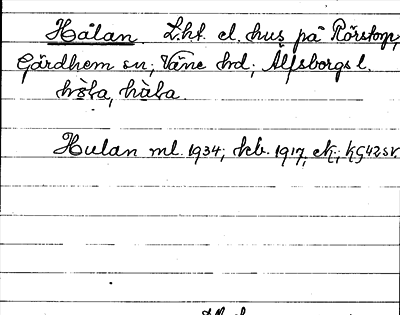 Hålan. L.ht. el. hus på Rörstorp,
Gärdhem sn; Väne hd; Älfsborgs l.
hòla, hàla.
Hulan ml. 1934; kb. 1917, ek; KG 42 sv.